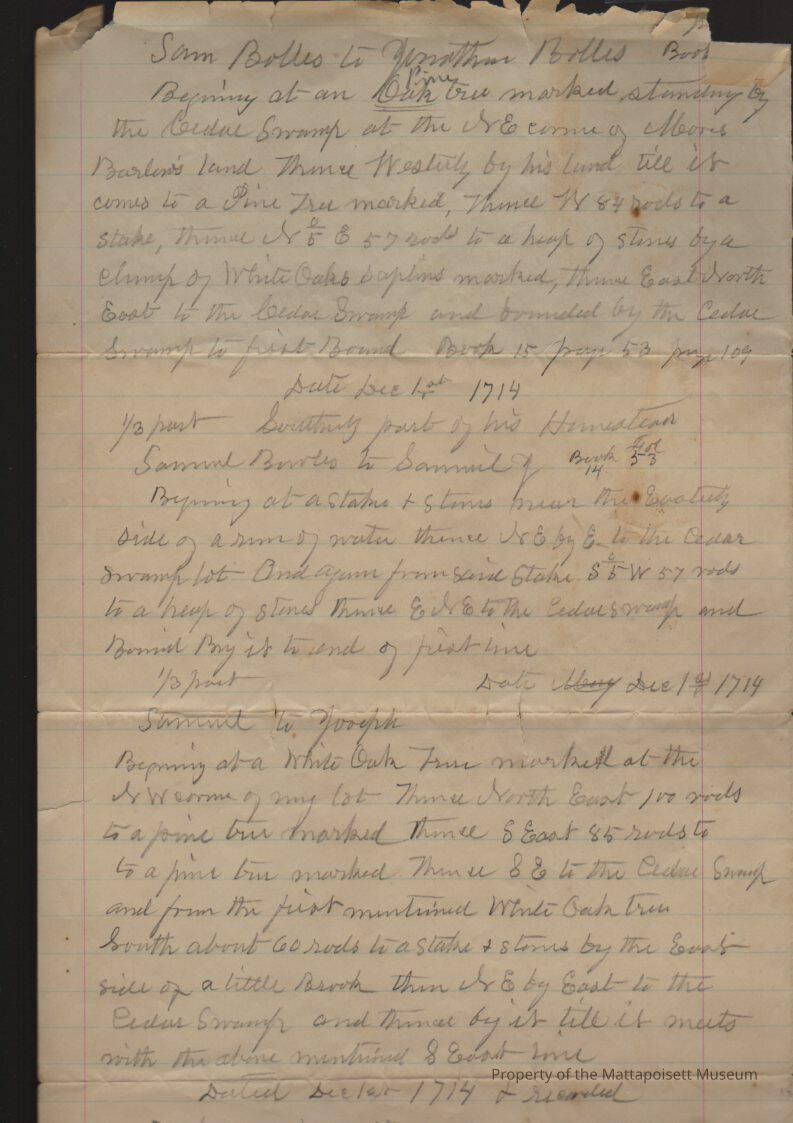 Sam Bolles to Jonathan Bolles Book
Pine
Begining at an Oak tree marked, standing by
the Cedar Swamp at the N E corner of Moses
Barlow's land thence Westerly by his land till it
comes to a Pine Tree marked, thence W 84 rods to a
stake, thence N 5° E 57 rods to a heap of stones by a
clump of White Oaks saplins marked, thence East North
East to the Cedar Swamp and bounded by the Cedar
Swamp to first Bound Book 15 page 53 page 109
Date Dec 1st 1714
1/3 part Southerly part of his Homestead
Samuel Bowles to Samuel Jr Book 14 Fol 53
Begining at a stake & stones near the Easterly
side of a run of water thence N E by E to the Cedar
Swamp lot And again from said Stake S 5° W 57 rods
to a heap of stones thence E N E to the Cedar Swamp and
Bound By it to end of first line
1/3 part Date May Dec 1st 1714
Samuel to Joseph
Begining at a White Oak Tree marked at the
N W corner of my lot Thence North East 100 rods
to a pine tree marked thence S East 85 rods to
to a pine tree marked Thence S E to the Cedar Swamp
and from the first mentioned White Oak tree
South about 60 rods to a stake & stones by the East
side of a little Brook then N E by East to the
Cedar Swamp and thence by it till it meets
with the above mentioned S East line
Property of the Mattapoisett Museum
Dated Dec 1st 1714 & recorded